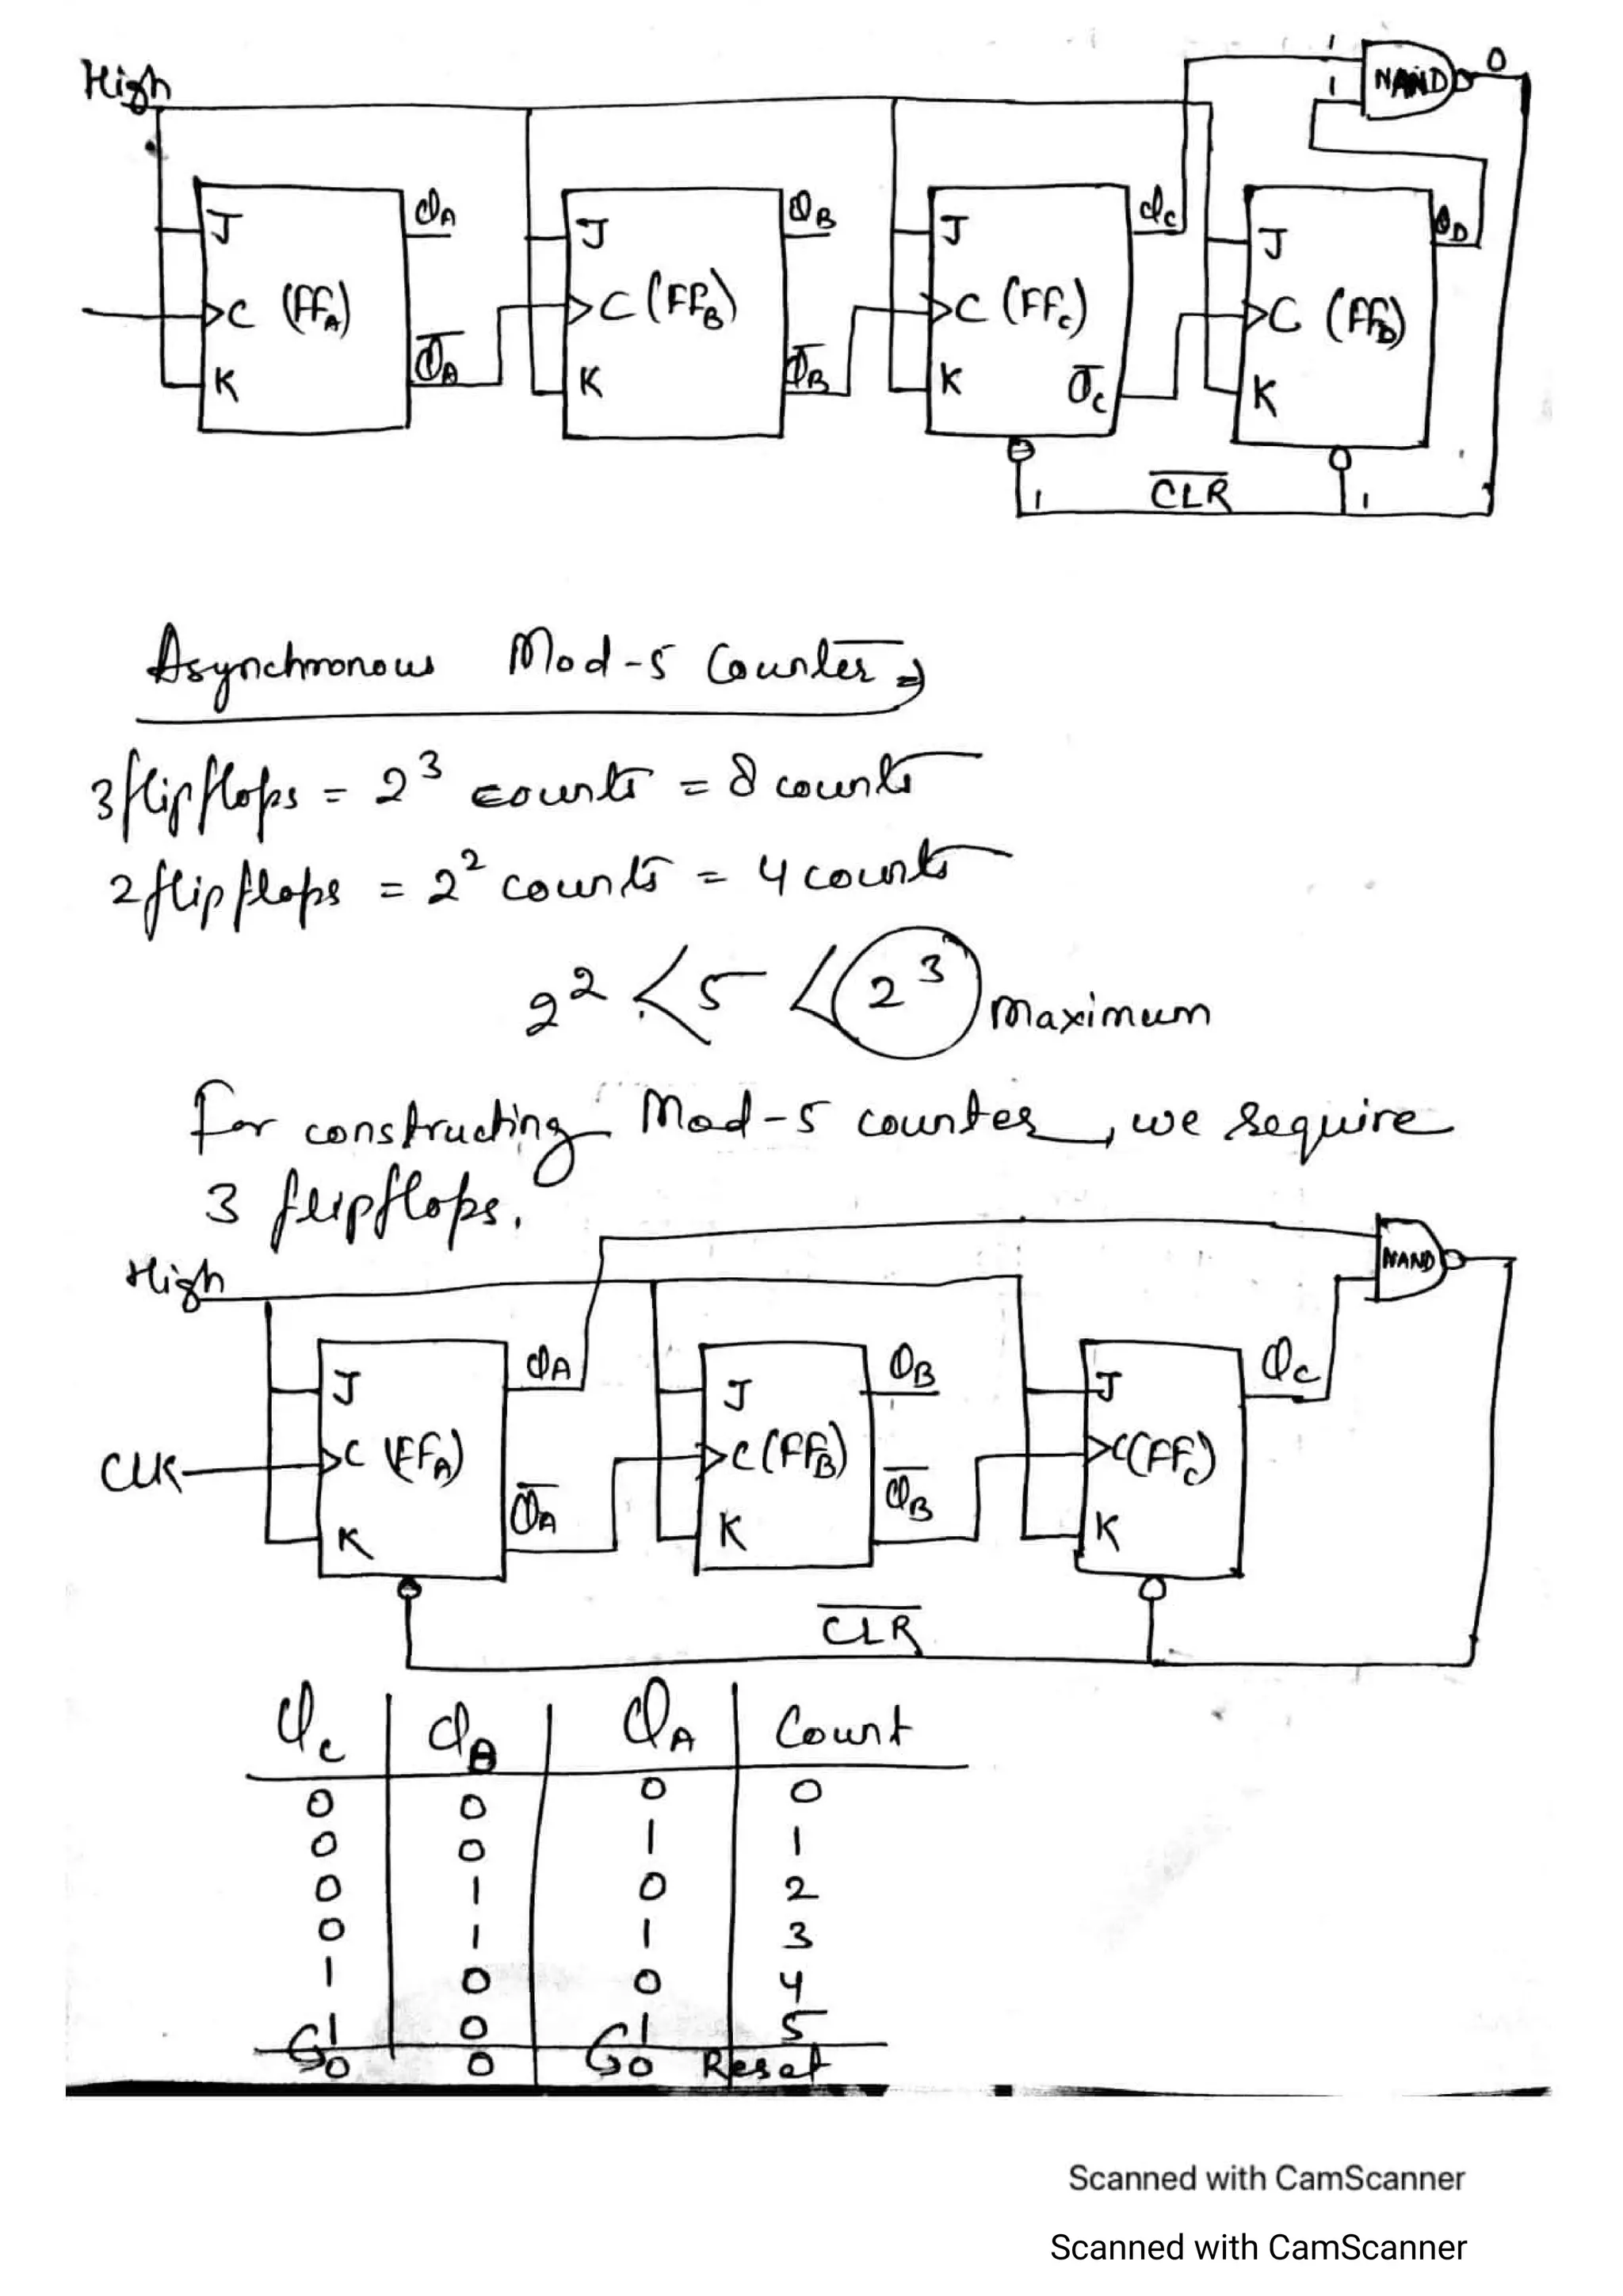 High
1
1
NAND
0
J
C (FFA)
K
QA
Q̅A
J
C (FFB)
K
QB
Q̅B
J
C (FFC)
K
QC
Q̅C
J
C (FFD)
K
QD
1
C̅L̅R̅
1
Asynchronous Mod-5 Counter ⇒
3 flipflops = 2³ counts = 8 counts
2 flipflops = 2² counts = 4 counts
2² < 5 < 2³ Maximum
For constructing Mod-5 counter, we require
3 flipflops.
High
NAND
CLK
J
C (FFA)
K
QA
Q̅A
J
C (FFB)
K
QB
Q̅B
J
C (FFC)
K
QC
C̅L̅R̅
QC QB QA Count
0 0 0 0
0 0 1 1
0 1 0 2
0 1 1 3
1 0 0 4
1 0 1 5
0 0 0 Reset
Scanned with CamScanner
Scanned with CamScanner